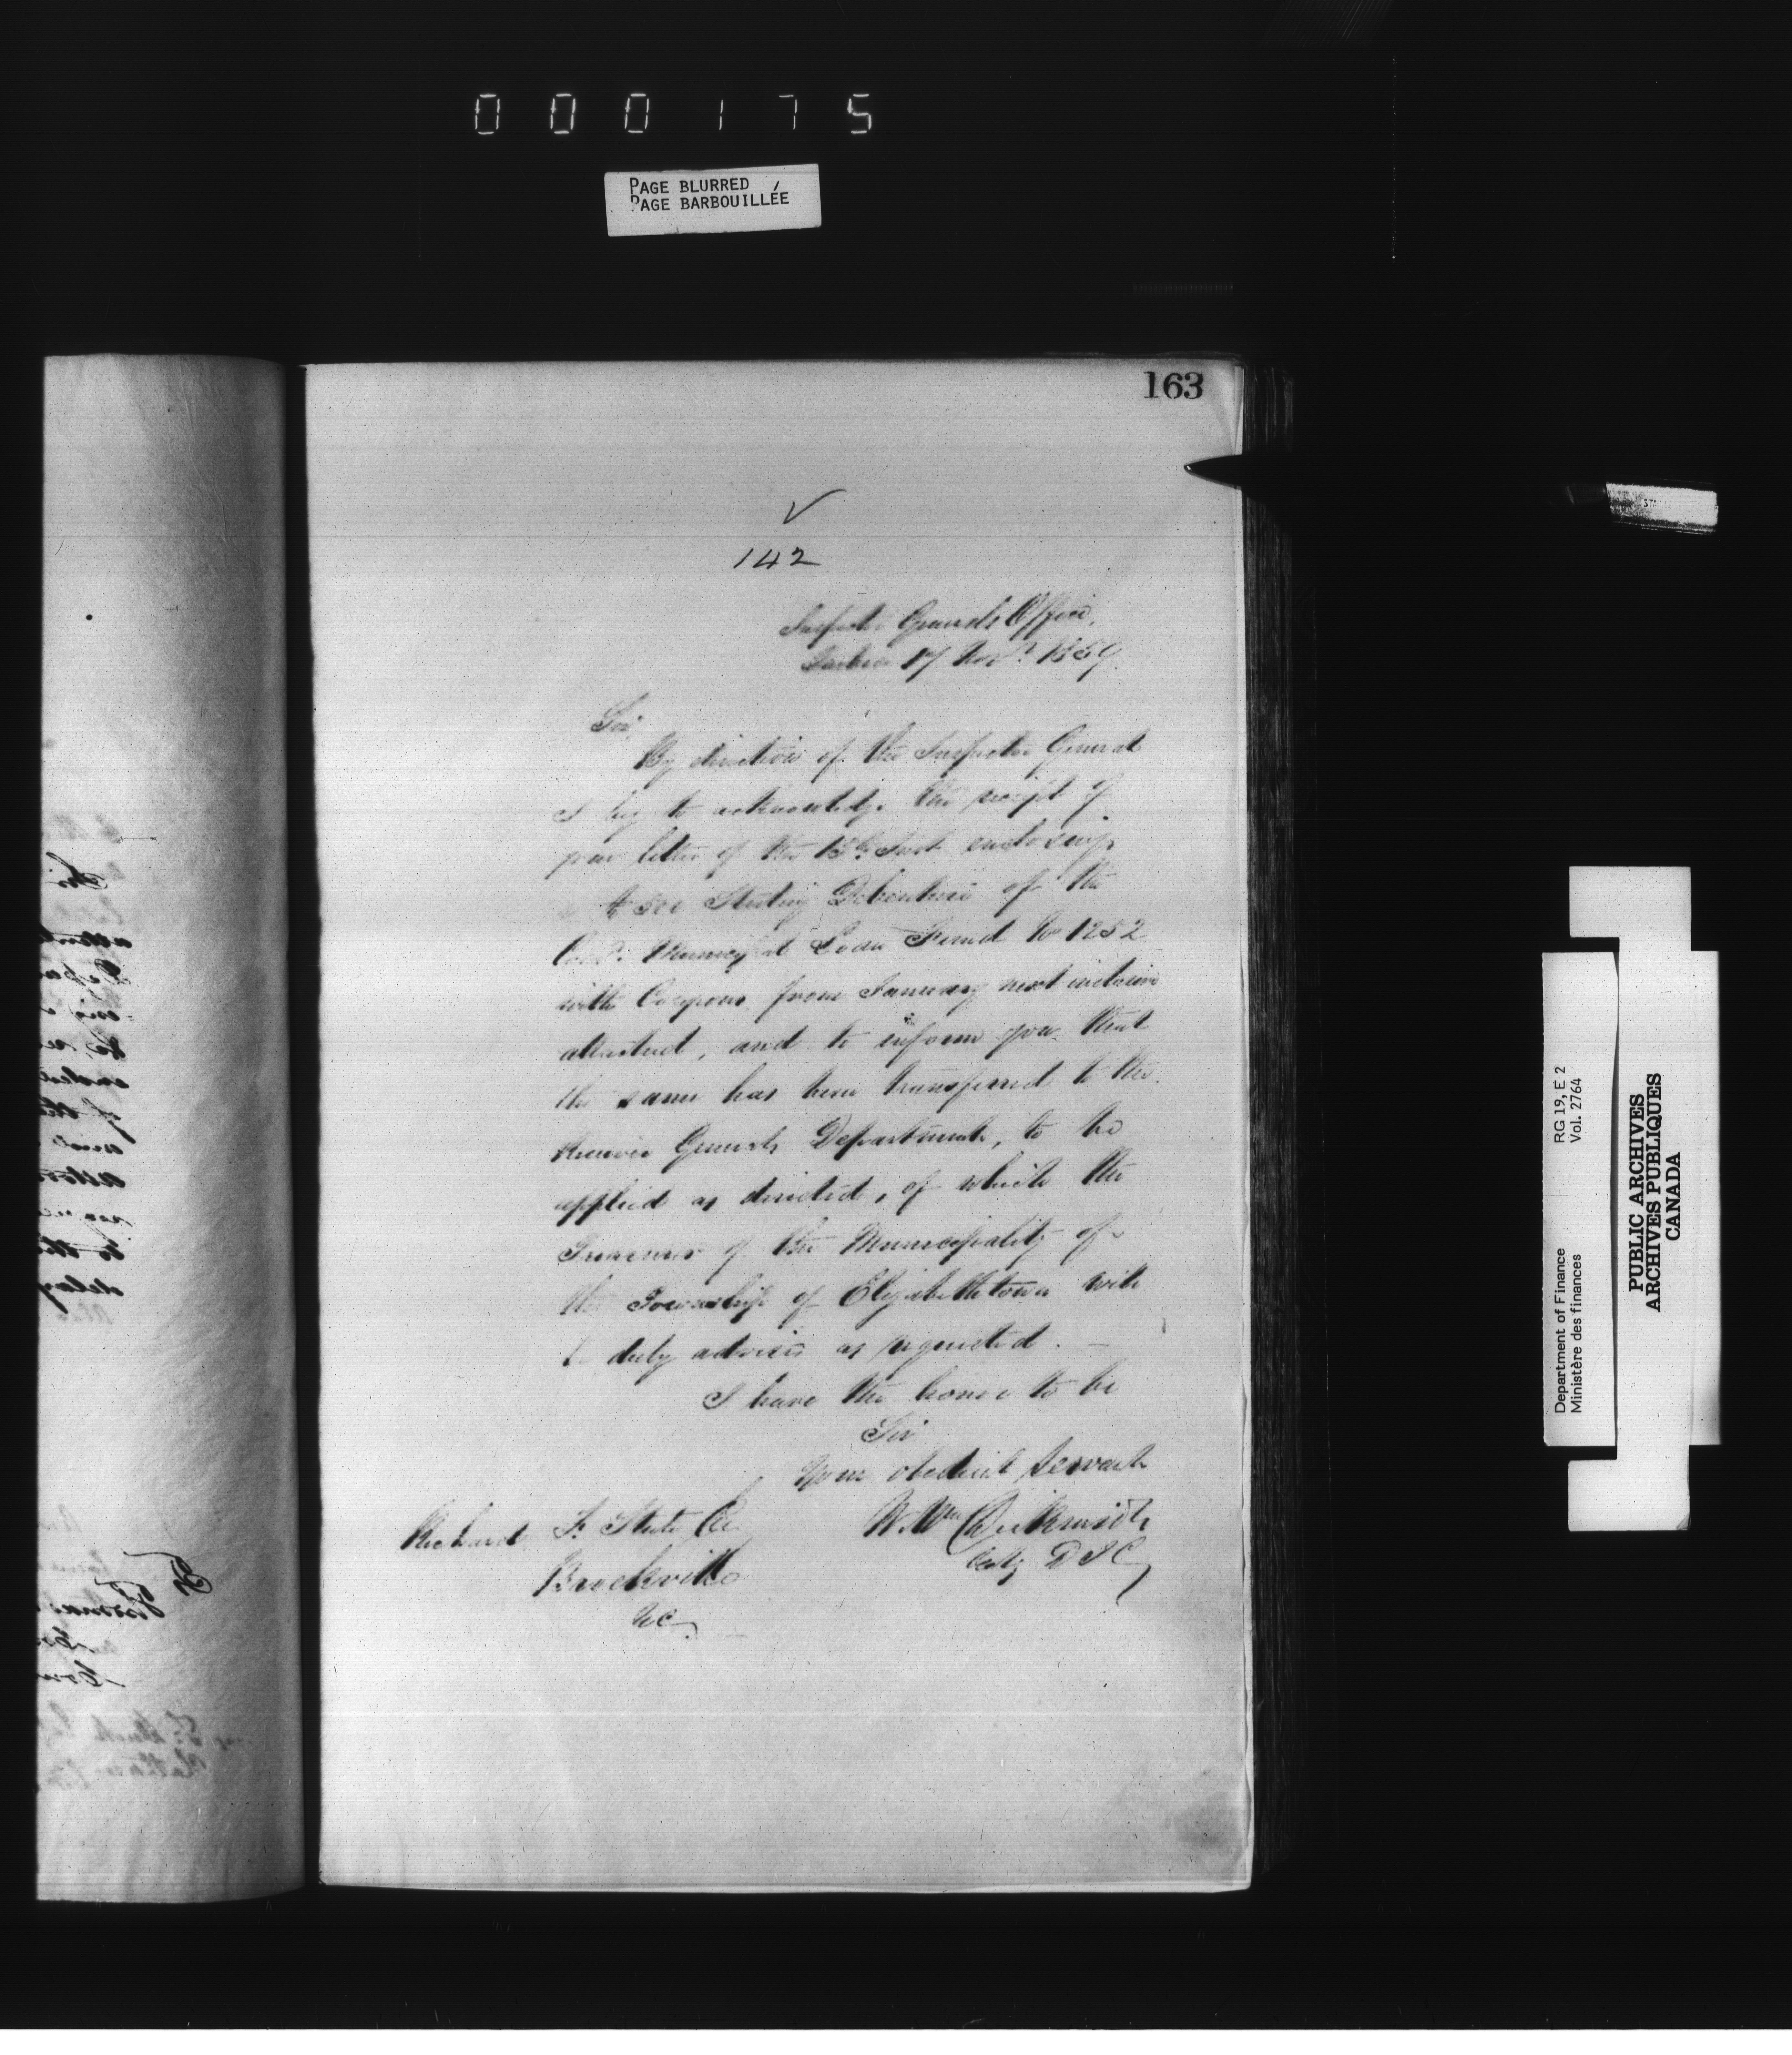 000175
PAGE BLURRED
PAGE BARBOUILLÉE
163
142
Inspector Generals Office,
Quebec 17 Novr. 1859.
Sir,
By direction of the Inspector General
I beg to acknowledge the receipt of
your letter of the 15th Inst enclosing
a £500 Sterling Debenture of the
Cold. Municipal Loan Fund No 1252
with Coupons from January next inclusive
attached, and to inform you that
the same has been transferred to the
Receiver Generals Department, to be
applied as directed, of which the
Treasurer of the Municipality of
the Township of Elizabethtown will
be duly advised as requested. —
I have the honor to be
Sir
Your obedient servant
Wm
Actg D I G
Richard F. Steele
Brockville
UC.
RG 19, E 2
Vol. 2764
Department of Finance
Ministère des finances
PUBLIC ARCHIVES
ARCHIVES PUBLIQUES
CANADA